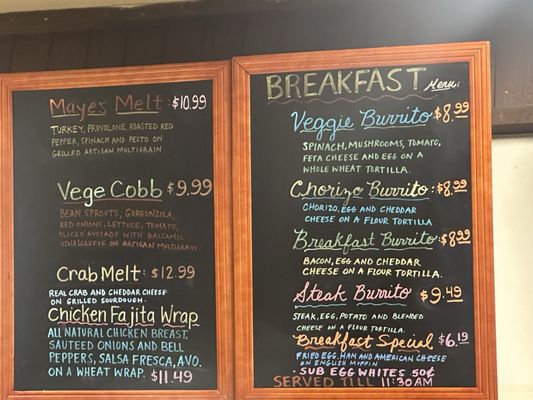 Maye's Melt: $10.99
TURKEY, PROVOLONE, ROASTED RED
PEPPER, SPINACH AND PESTO ON
GRILLED ARTISAN MULTIGRAIN
Vege Cobb $9.99
BEAN SPROUTS, GORGONZOLA,
RED ONIONS, LETTUCE, TOMATO,
SLICED AVOCADO WITH BALSAMIC
VINAIGRETTE ON ARTISAN MULTIGRAIN
Crab Melt: $12.99
REAL CRAB AND CHEDDAR CHEESE
ON GRILLED SOURDOUGH.
Chicken Fajita Wrap
ALL NATURAL CHICKEN BREAST,
SAUTEED ONIONS AND BELL
PEPPERS, SALSA FRESCA, AVO.
ON A WHEAT WRAP. $11.49
BREAKFAST Menu:
Veggie Burrito $8.99
SPINACH, MUSHROOMS, TOMATO,
FETA CHEESE AND EGG ON A
WHOLE WHEAT TORTILLA.
Chorizo Burrito: $8.99
CHORIZO, EGG AND CHEDDAR
CHEESE ON A FLOUR TORTILLA
Breakfast Burrito $8.99
BACON, EGG AND CHEDDAR
CHEESE ON A FLOUR TORTILLA.
Steak Burrito $9.49
STEAK, EGG, POTATO AND BLENDED
CHEESE ON A FLOUR TORTILLA.
Breakfast Special $6.19
FRIED EGG, HAM AND AMERICAN CHEESE
ON ENGLISH MUFFIN
· SUB EGG WHITES 50¢
SERVED TILL 11:30AM